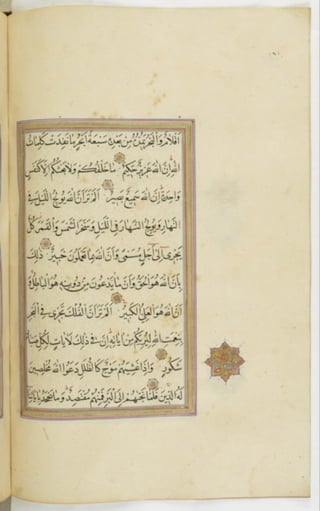 اَقْلَامٌ وَالْبَحْرُ يَمُدُّهُ مِنْ بَعْدِهِ سَبْعَةُ اَبْحُرٍ مَا نَفِدَتْ كَلِمَاتُ
اللهِ اِنَّ اللهَ عَزِيزٌ حَكِيمٌ مَا خَلْقُكُمْ وَلَا بَعْثُكُمْ اِلَّا كَنَفْسٍ
وَاحِدَةٍ اِنَّ اللهَ سَمِيعٌ بَصِيرٌ اَلَمْ تَرَ اَنَّ اللهَ يُولِجُ اللَّيْلَ فِي
النَّهَارِ وَيُولِجُ النَّهَارَ فِي اللَّيْلِ وَسَخَّرَ الشَّمْسَ وَالْقَمَرَ كُلٌّ
يَجْرِي اِلَى اَجَلٍ مُسَمًّى وَاَنَّ اللهَ بِمَا تَعْمَلُونَ خَبِيرٌ ذٰلِكَ
بِاَنَّ اللهَ هُوَ الْحَقُّ وَاَنَّ مَا يَدْعُونَ مِنْ دُونِهِ الْبَاطِلُ وَ
اَنَّ اللهَ هُوَ الْعَلِيُّ الْكَبِيرُ اَلَمْ تَرَ اَنَّ الْفُلْكَ تَجْرِي فِي الْبَحْرِ
بِنِعْمَتِ اللهِ لِيُرِيَكُمْ مِنْ اٰيَاتِهِ اِنَّ فِي ذٰلِكَ لَاٰيَاتٍ لِكُلِّ صَبَّارٍ
شَكُورٍ وَاِذَا غَشِيَهُمْ مَوْجٌ كَالظُّلَلِ دَعَوُا اللهَ مُخْلِصِينَ
لَهُ الدِّينَ فَلَمَّا نَجّٰهُمْ اِلَى الْبَرِّ فَمِنْهُمْ مُقْتَصِدٌ وَمَا يَجْحَدُ بِاٰيَاتِنَا